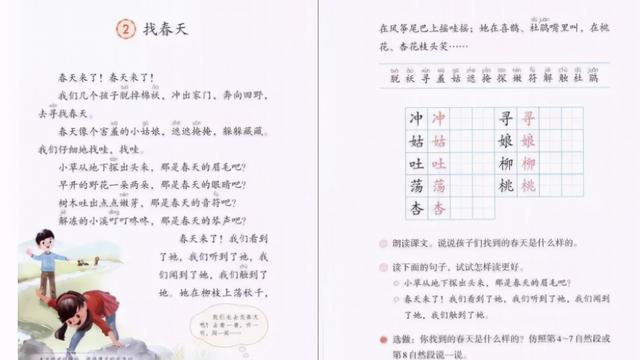 2 找春天
春天来了！春天来了！
我们几个孩子脱掉棉袄，冲出家门，奔向田野，
去寻找春天。
春天像个害羞的小姑娘，遮遮掩掩，躲躲藏藏。
我们仔细地找哇，找哇。
小草从地下探出头来，那是春天的眉毛吧？
早开的野花一朵两朵，那是春天的眼睛吧？
树木吐出点点嫩芽，那是春天的音符吧？
解冻的小溪叮叮咚咚，那是春天的琴声吧？
春天来了！我们看到
了她，我们听到了她，我
们闻到了她，我们触到了
她。她在柳枝上荡秋千，
我们也去找春天
吧！去看一看，听一
听，闻一闻……
在风筝尾巴上摇哇摇；她在喜鹊、杜鹃嘴里叫，在桃
花、杏花枝头笑……
脱 袄 寻 羞 姑 遮 掩 探 嫩 符 解 触 杜 鹃
冲 冲 寻 寻
姑 姑 娘 娘
吐 吐 柳 柳
荡 荡 桃 桃
杏 杏
朗读课文。说说孩子们找到的春天是什么样的。
读下面的句子，试试怎样读更好。
小草从地下探出头来，那是春天的眉毛吧？
春天来了！我们看到了她，我们听到了她，我们闻到
了她，我们触到了她。
选做：你找到的春天是什么样的？仿照第4~7自然段或
第8自然段说一说。